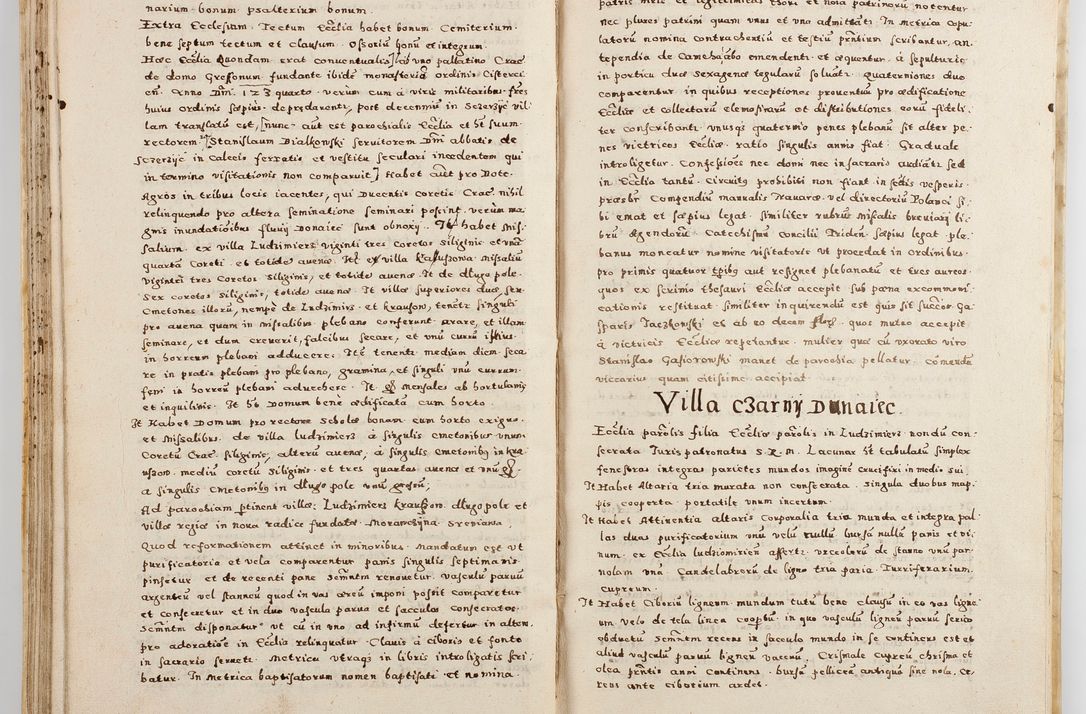 narium bonum psalterium bonum.
Extra Ecclesiam. Tectum Ecclia habet bonum. Cemiterium
bene septum tectum et clausum. Ossoriū bonū et integrum.
Hæc Ecclia Quondam erat conventualis ab uno pallatino Crac
de domo Grefsonum fundante ibidē monasteriū ordinis Cisterci
en. Anno Dni. 123 quarto. verum cum à viris militaribus fres
huius ordinis sæpius deprædarenti, post decenniū in Sczerzic vil
lam translatū est, nunc aut est parochialis Ecclia et ht suum
rectorem Stanislaum Dialkowski servitorem Dni abbatis de
Sczerzic in calceis ferratis et vestitu seculari incedentem qui
in termino visitationis non comparuit. Habet aut pro Dote
Agros in tribus locis iacentes, qui Ducentis coretis Crac. nihil
relinquendo pro altera seminatione seminari possint. verùm ma
gnis inundatioibus fluuij Donaiec sunt obnoxij. It habet Mis
salium ex villa Ludzimierz viginti tres Coretos siliginis et unū
quartā Coreti et totidē avenæ. It ex villa Missaliū
viginti tres Coretos Siliginis, et totidē avenæ. It de dlugo pole
Sex coretos siliginis, totidē avenæ. It villæ superiores duæ, seu
Cmetones illorū, nempè de Ludzimirz et krauszow, tenēt singuli
pro avena quam in Missalibus plebano conferunt arare, et illam
seminare, et dum creverit, falcibus secare, et unū currū
in horreum plebani adducere. Itē tenent mediam diem seca
re in pratis plebani pro plebano, gramina, et singuli unū currum
feni in horreū plebani adducere. It mensales ab hortulanis
et inquilinis. It ht Domum bene ædificatā cum horto.
It Habet Domum pro rectore Scholæ bonam cum horto exiguo
et Missalibus. de villa Ludzimierz à singulis cmetonibus unum
Coretū Crac siliginis, alterū avenæ, à singulis Cmetonibus in kra
uszow mediū coretū Siliginis et tres quartas avenæ et unū
à singulis Cmetonibus in dlugo pole unū grossū.
Ad parochiam ptinent villæ: Ludzimierz Krauszow. dlugo pole et
villæ regiæ in Nova radice fundatæ. Morawczyna. Sreniawa.
Quod reformationem attinet in minoribus. Mandatum est ut
purificatoria et vela comparentur panis singulis septimanis
pinsetur et de recenti pane Semntm renovetur. vasculū parvū
argenteū vel stanneū quod in vas æreū imponi possit comparetur
et consecretur et in duo vascula parua et sacculos consecratos
Semntm disponatur ut cū in uno ad infirmū defertur in altero
pro adoratiōe in Ecclia relinquatur. Clavis à ciborio et fonte
in sacrario servetr. Metricæ utraqz in libris introligatis scri
batur. In Metrica baptisatorum nomen baptisati et nomina
patris nec plures patrini quam unus et una admittāt. In metrica copu
latorū nomina contrahentiū et testiū pntium scribantur, an
tependia de Camehajbo emendentr et æquentur. à sepulturis
in porticu duæ sexagenæ tegularū solvāt. Quaterniones duo
comparentur in quibus receptiones proventus pro ædificatione
Eccliæ et collectarū elemosinarū et distributiones eorū fideli
ter conscribanti. unusqz quaternio penes plebanū sit alter pe
nes vietricos Eccliæ. ratio singulis annis fiat. Graduale
introligetur. Confessiōes nec domi nec in sacraris audiāt sed
in Ecclia tantū. Circuitus prohibiti non fiant in festis vesperis.
præsbr. Compendiū manualis Nauaræ. vel directoriū Polanci si
bi emat et sæpius legat. similiter rubrū Missalis breviarij li
brū Agendorū. Catechismū Concilij Triden. sæpius legat ple
banus moneatur nomine visitatoris ut procedat in ordinibus.
pro primis quatuor tpibz aut resignet plebanatū et tres aureos
quos ex scrinio thesauri Eccliæ accepit sub pæna excommuni
cationis restituat. similiter inquirendū est quis sit succōr Ga
sparis Jaczkowski et ab eo decem quos mutuo accepit
à vietricis Eccliæ repetantur. mulier quæ cū uxorato viro
Stanislao Gasiorowski manet de parochia pellatur. Cōmenda
viccarius quam citissime accipiat.
Villa Czarny Dunaiec.
Ecclia parolis filia Eccliæ parolis in Ludzimierz nondū con
secrata Iuris patronatus S. R. M. Lacunar ht tabulatū simplex
fenestras integras parietes mundos imaginē crucifixi in medio sui.
It Habet Altaria tria murata non consecrata. singula duobus map
pis cooperta. portatile unum incertum.
It Habet Attinentia altaris Corporalia tria munda et integra pal
las duas purificatorium unū velū nullū bursā nullā panis et vi
num. ex Ecclia ludzimirien affertr. urceolorū de stanno unū par
nolam unā. Candelabrorū de ligno tria paria. Turriferarium
cupreum.
It Habet Ciboriū ligneum mundum tutū bene clausū in eo vas ligne
um velo de tela linea coopertū. in quo vasculū ligneū parvū serico
obductū Semntm recens in sacculo mundo in se continens est et
aliud vasculū parvū ligneū vacuū. Crismale cupreū chrisma et
olea pntis anni continens. bursā pelliceā antiquā sine nola. Ce
reus ante ciborium ardet.